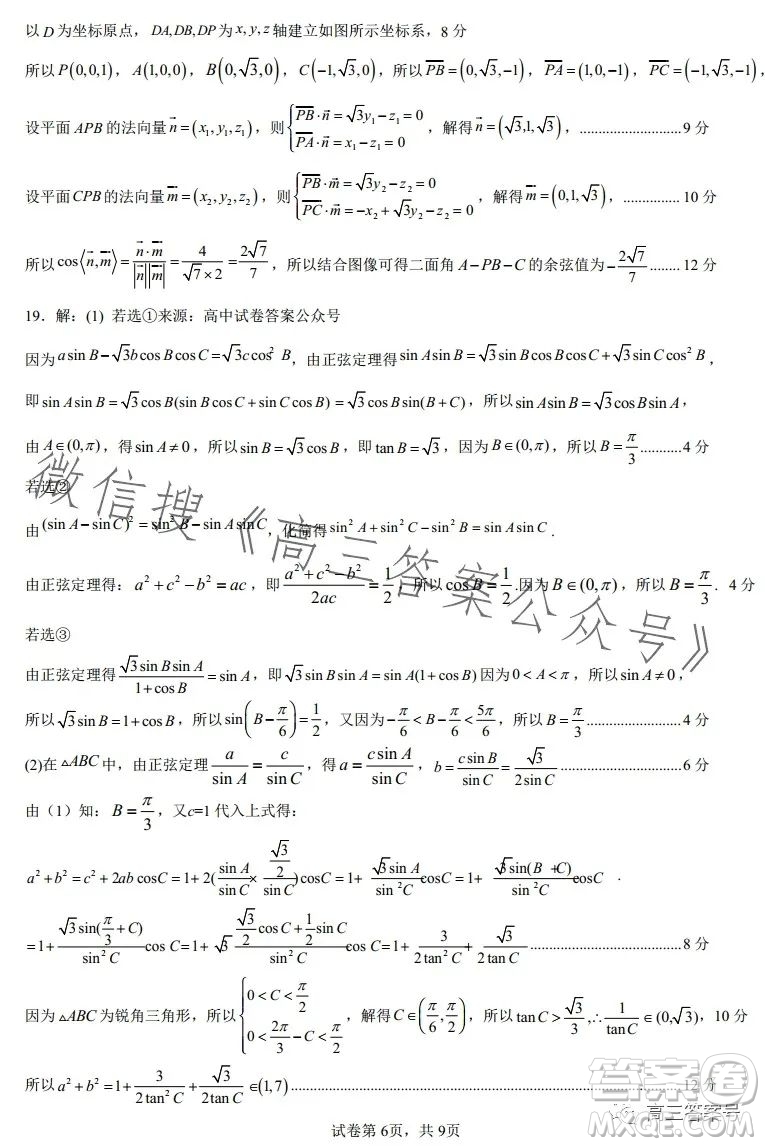 以 D 为坐标原点，DA,DB,DP 为 x,y,z 轴建立如图所示坐标系，8 分
所以 P(0,0,1)，A(1,0,0)，B(0,√3,0)，C(−1,√3,0)，所以 PB=(0,√3,−1)，PA=(1,0,−1)，PC=(−1,√3,−1)，
设平面 APB 的法向量 n=(x₁,y₁,z₁)，则{PB·n=√3y₁−z₁=0 PA·n=x₁−z₁=0，解得 n=(√3,1,√3)，............................9 分
设平面 CPB 的法向量 m=(x₂,y₂,z₂)，则{PB·m=√3y₂−z₂=0 PC·m=−x₂+√3y₂−z₂=0，解得 m=(0,1,√3)，............... 10 分
所以 cos⟨n,m⟩=n·m/|n||m|=4/(√7×2)=2√7/7，所以结合图像可得二面角 A−PB−C 的余弦值为 −2√7/7........ 12 分
19．解：(1) 若选①来源：高中试卷答案公众号
因为 a sin B−√3b cos B cos C=√3c cos² B，由正弦定理得 sin A sin B=√3 sin B cos B cos C+√3 sin C cos² B，
即 sin A sin B=√3 cos B(sin B cos C+sin C cos B)=√3 cos B sin(B+C)，所以 sin A sin B=√3 cos B sin A，
由 A∈(0,π)，得 sin A≠0，所以 sin B=√3 cos B，即 tan B=√3，因为 B∈(0,π)，所以 B=π/3...........4 分
若选②
由 (sin A−sin C)²=sin² B−sin A sin C，化简得 sin² A+sin² C−sin² B=sin A sin C．
由正弦定理得：a²+c²−b²=ac，即 (a²+c²−b²)/2ac=1/2，所以 cos B=1/2.因为 B∈(0,π)，所以 B=π/3．4 分
若选③
由正弦定理得 √3 sin B sin A/(1+cos B)=sin A，即 √3 sin B sin A=sin A(1+cos B) 因为 0<A<π，所以 sin A≠0，
所以 √3 sin B=1+cos B，所以 sin(B−π/6)=1/2，又因为 −π/6<B−π/6<5π/6，所以 B=π/3.........................4 分
(2)在 △ABC 中，由正弦定理 a/sin A=c/sin C，得 a=c sin A/sin C，b=c sin B/sin C=√3/2 sin C.................................6 分
由（1）知：B=π/3，又c=1 代入上式得：
a²+b²=c²+2ab cos C=1+2(sin A/sin C×(√3/2)/sin C)cos C=1+√3 sin A/sin² C cos C=1+√3 sin(B+C)/sin² C cos C．
=1+√3 sin(π/3+C)/sin² C cos C=1+√3(√3/2 cos C+1/2 sin C)/sin² C cos C=1+3/2 tan² C+√3/2 tan C.........................................8 分
因为 △ABC 为锐角三角形，所以{0<C<π/2 0<2π/3−C<π/2，解得 C∈(π/6,π/2)，所以 tan C>√3/3,∴1/tan C∈(0,√3)，10 分
所以 a²+b²=1+3/2 tan² C+√3/2 tan C∈(1,7)...........................................................................................12 分
试卷第 6页，共 9页
微信搜《高三答案公众号》
答案圈
MXQE.COM
高三答案号